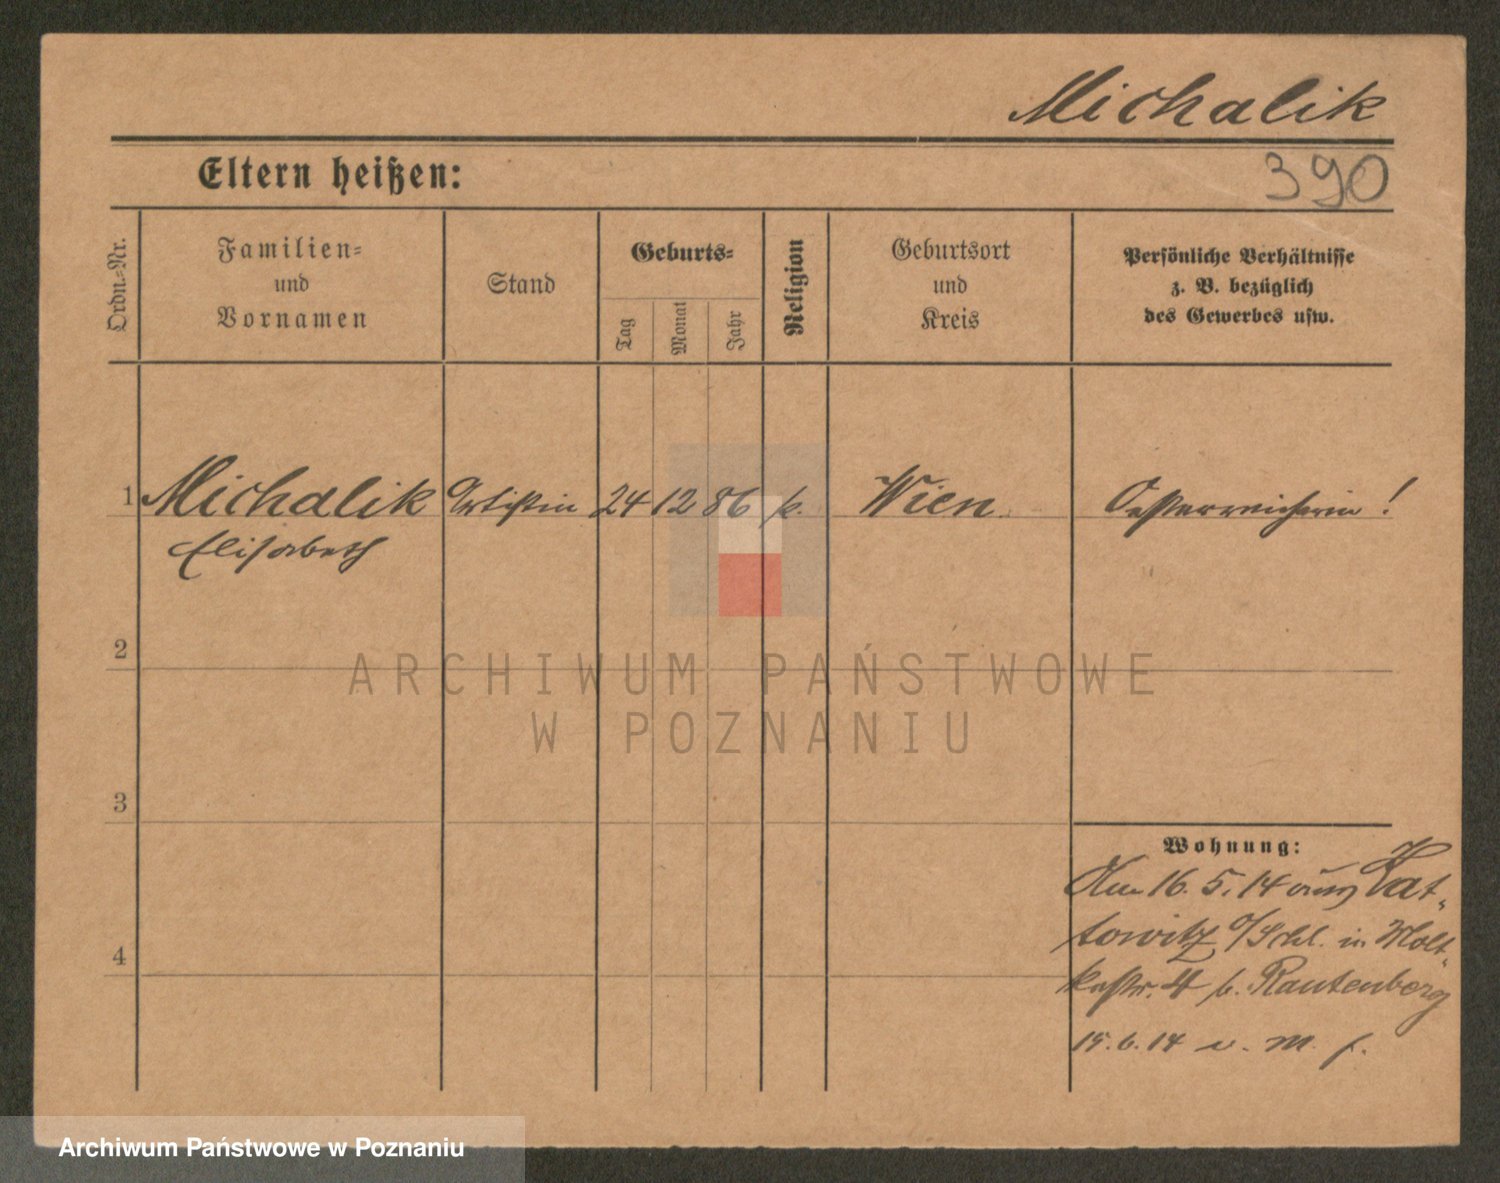 Michalik
Eltern heißen:
390
Ordn.-Nr.
Familien-
und
Vornamen
Stand
Geburts-
Tag
Monat
Jahr
Religion
Geburtsort
und
Kreis
Persönliche Verhältnisse
z. B. bezüglich
des Gewerbes usw.
1 Michalik Artistin 24 12 86 k. Wien. Oesterreicherin!
Elisabeth
2
ARCHIWUM PAŃSTWOWE
W POZNANIU
3
Wohnung:
Am 16. 5. 14 aus Kat-
towitz o/Schl. in Molt-
kestr. 4 b. Rautenberg
4
15. 6. 14 v. M.
Archiwum Państwowe w Poznaniu